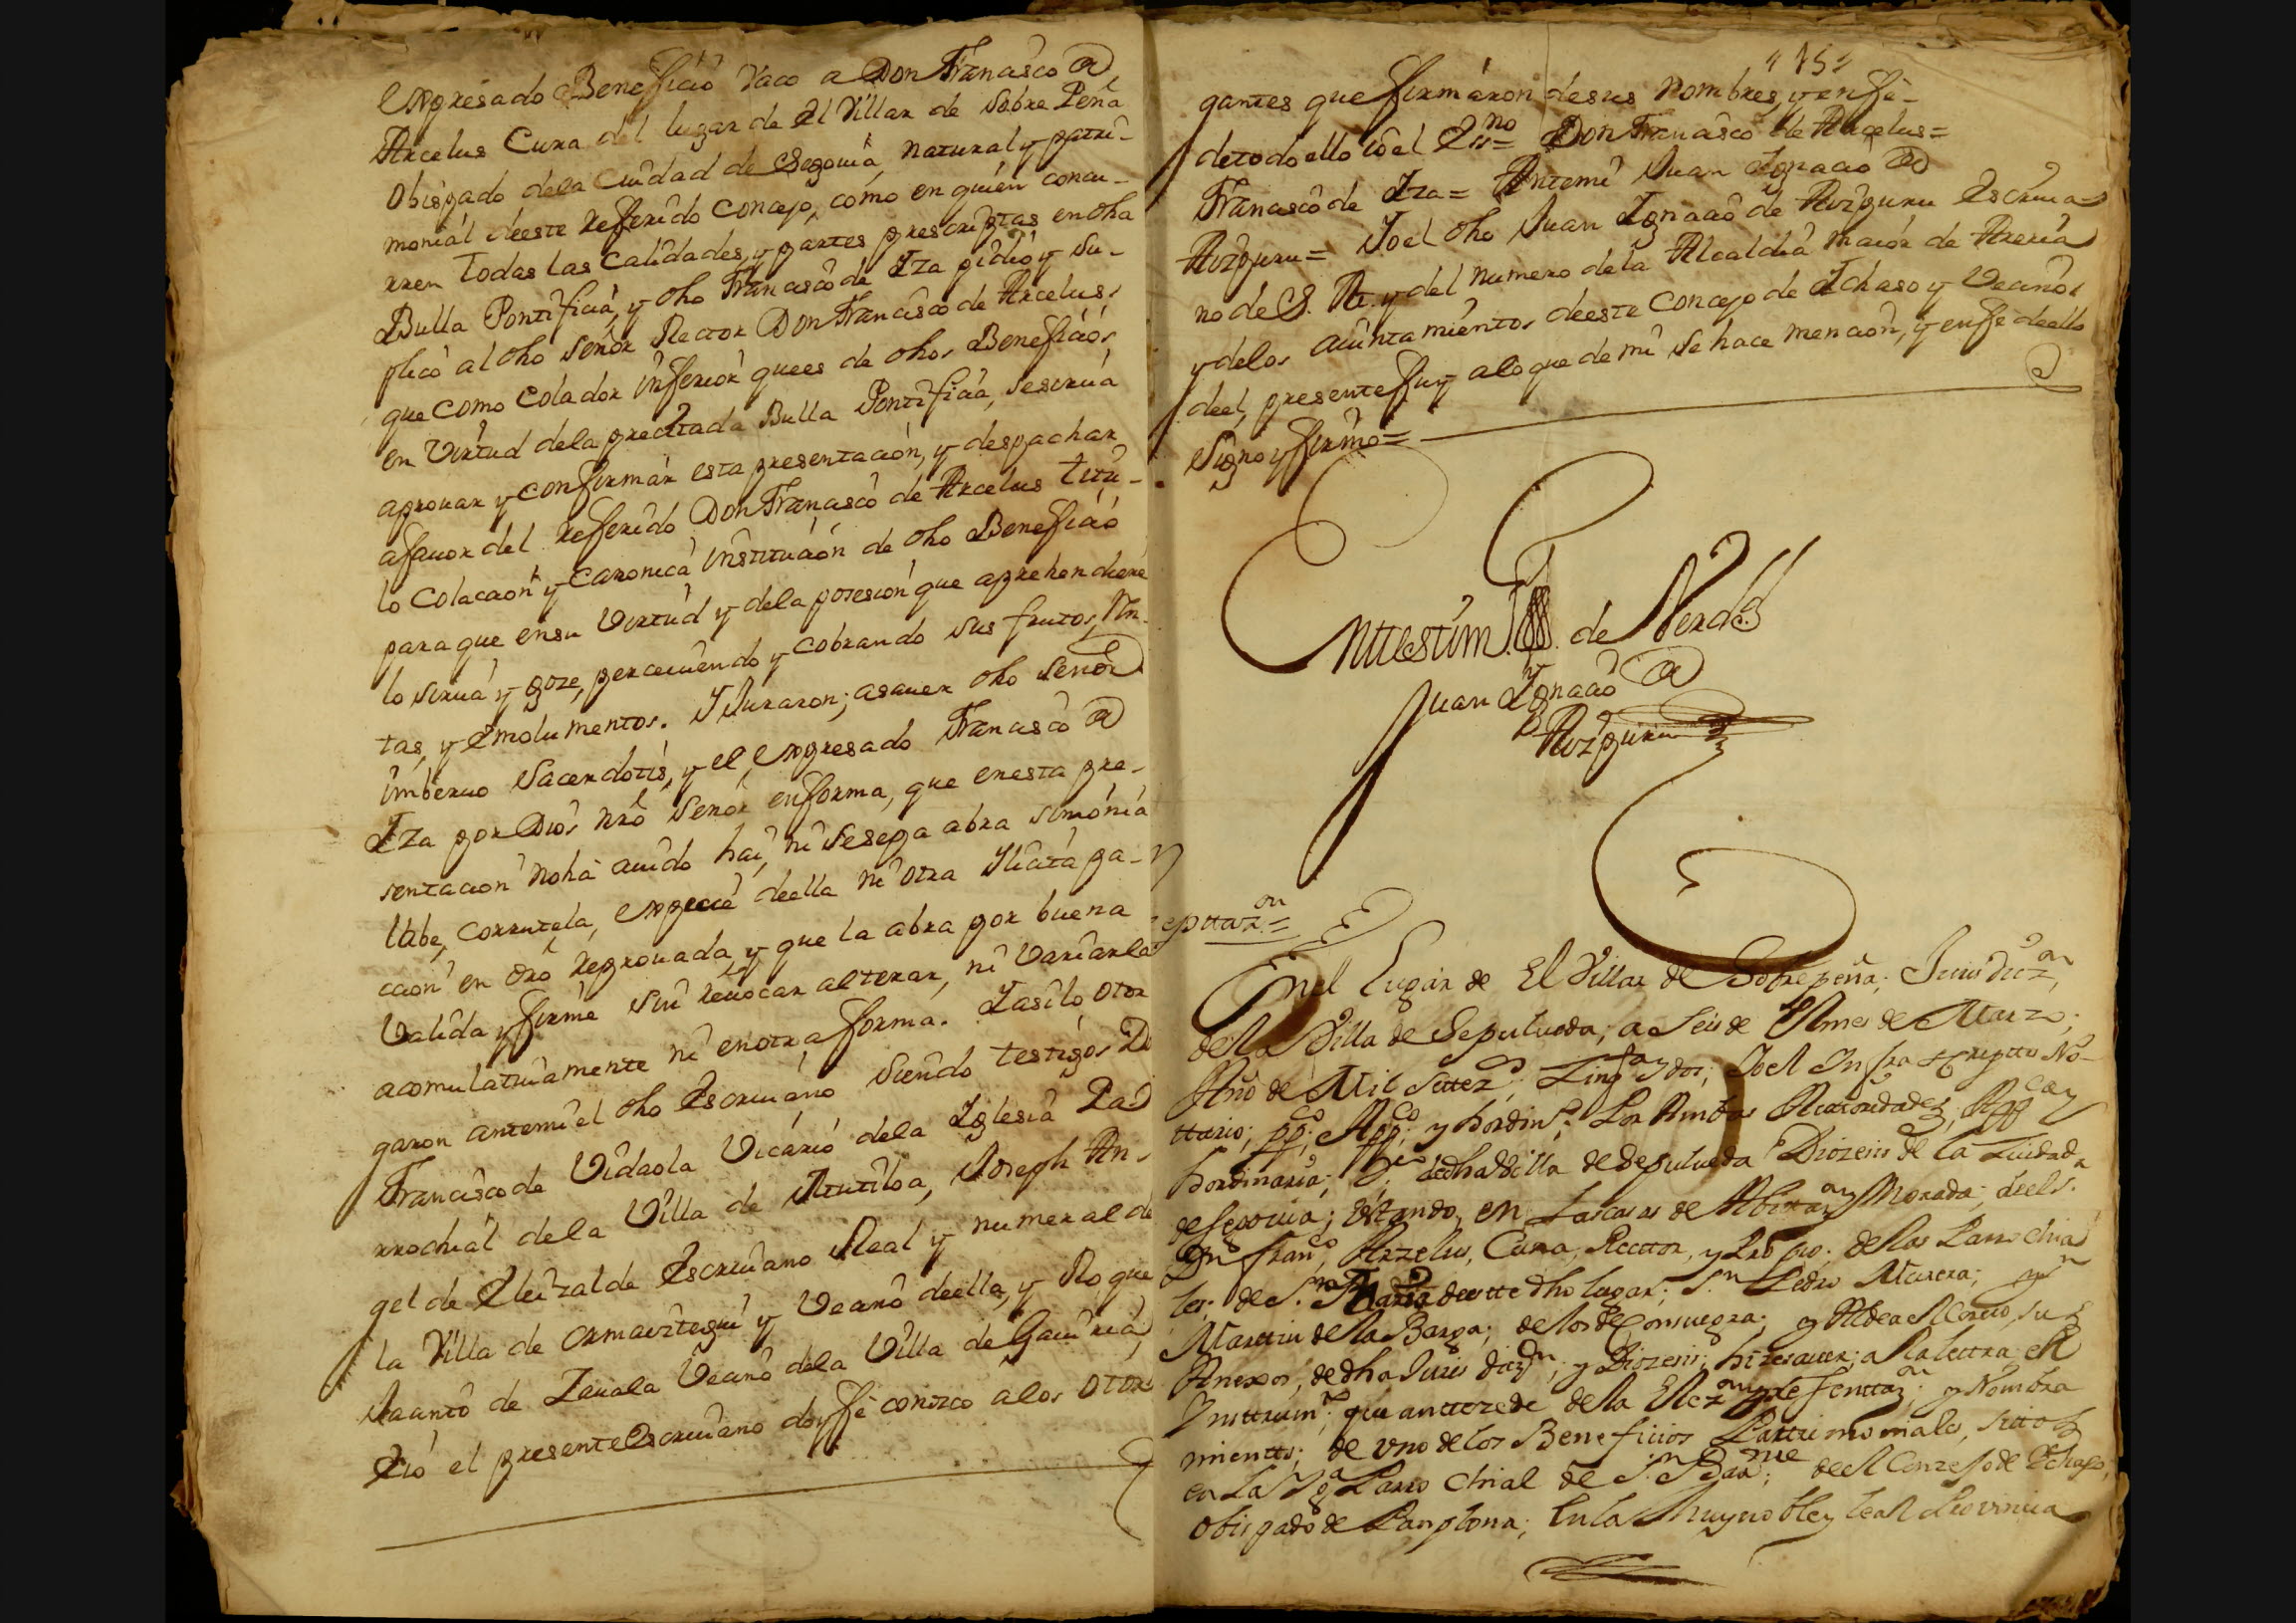 expresado Beneficio Vaco a Don Francisco de
Arcelus Cura del lugar de el Villar de Sobre Peña
Obispado dela Ciudad de Segovia, natural y patri-
monial deeste Refferido Concejo, como en quien concu-
rren todas las Calidades, y partes prescriptas en dha
Bulla Pontificia, y dho Francisco de Iza pidio, y su-
plicò al dho Señor Rector Don Francisco de Arcelus,
que como Colador inferior quees de dhos Beneficios
en Virtud dela precitada Bulla Pontificia, se sirua
aprouar y confirmar esta presentacion, y despachar
afauor del Refferido Don Francisco de Arcelus titu-
lo Colacion y Canonica institucion de dho Beneficio
paraque ensu Virtud y dela posesion que aprehendiere
lo sirua y goze, perceuiendo y cobrando sus frutos, Rn-
tas, y Emolumentos. I Juraron; asauer dho Señor
inberuo Sacerdotis, y el expresado Francisco de
Iza por Dios nrô Señor enforma, que enesta pre-
sentacion noha auido hai, ni sesepa abra simonia
labe, corrutela, especie deella ni otra Ylicita pa-
ccion en drô Reprouada, y que la abra por buena
Valida y firme sin reuocar alterar, ni Variarla
acomulatiuamente ni enotra forma. Iasilo otor
garon antemi el dho Escriuano siendo testigos Dn
Francisco de Vidaola Vicario dela Iglesia Pa-
rrochial dela Villa de Mutiloa, Joseph An-
gel de Eleizalde Escriuano Real y numeral de
la Villa de Ormaiztegui y Vecino deella, y Roque
Jacinto de Zauala Vecino dela Villa de Gauiria,
Eió el presente Escriuano doyfè conozco alos otor
" 15 "
gantes que firmaron desus nombres, y enfè-
detodoello io el Essno= Don Francisco de Arcelus=
Francisco de Iza= Antemi Juan Ignacio de
Aizpuru= Io el dho Juan Ignacio de Aizpuru Escriua-
no de S. M. y del numero dela Alcaldia maior de Areria
y delos aiuntamientos deeste Concejo de Ichaso y Vecino
deel, presente fuy alo que de mi se hace mencion, y enfè deello
Signo y firmo=
En testim. de Verdad
Juan Ignacio de
Aizpuru
epttazon=
En el Lugar de El Villar de Sobrepeña; Jurisdizon,
de la Villa de Sepulueda; a Seis de El Mes de Marzo;
Año de Mil Settezos; Zinqta y dos; Io el Infraescriptto No-
ttario; ppco; Appco; y hordino; Por Ambas Autoridades; Appca y
hordinaria; Vo. de dha Villa de Sepulueda Diozesis de la Ziudad
de Segouia; Estando, en Las casas de Abittazon y Morada; de el Sr.
Dn Franco, Arzelus, Cura, Recttor, y Pro pio. de las Parrochia
les; de Sta Maria de estte dho lugar; Sn Pedro Mazera; y Sn
Marttin de la Barga; de los de Consuegra; y Aldea el Coruo, sus
Anexos, de dha Jurisdizon; y Diozesis; hize sauer; a la lettra el
Insttrumto; que anttezede de la Elezon y Presenttazon; y Nombra
mientto; de vno de los Beneficios Pattrimoniales, sittos
en La Iga Parrochial de Sn; de el Conzejo de Echaso,
Obispado de Panplona; En la Muy noble y leal Prouincia